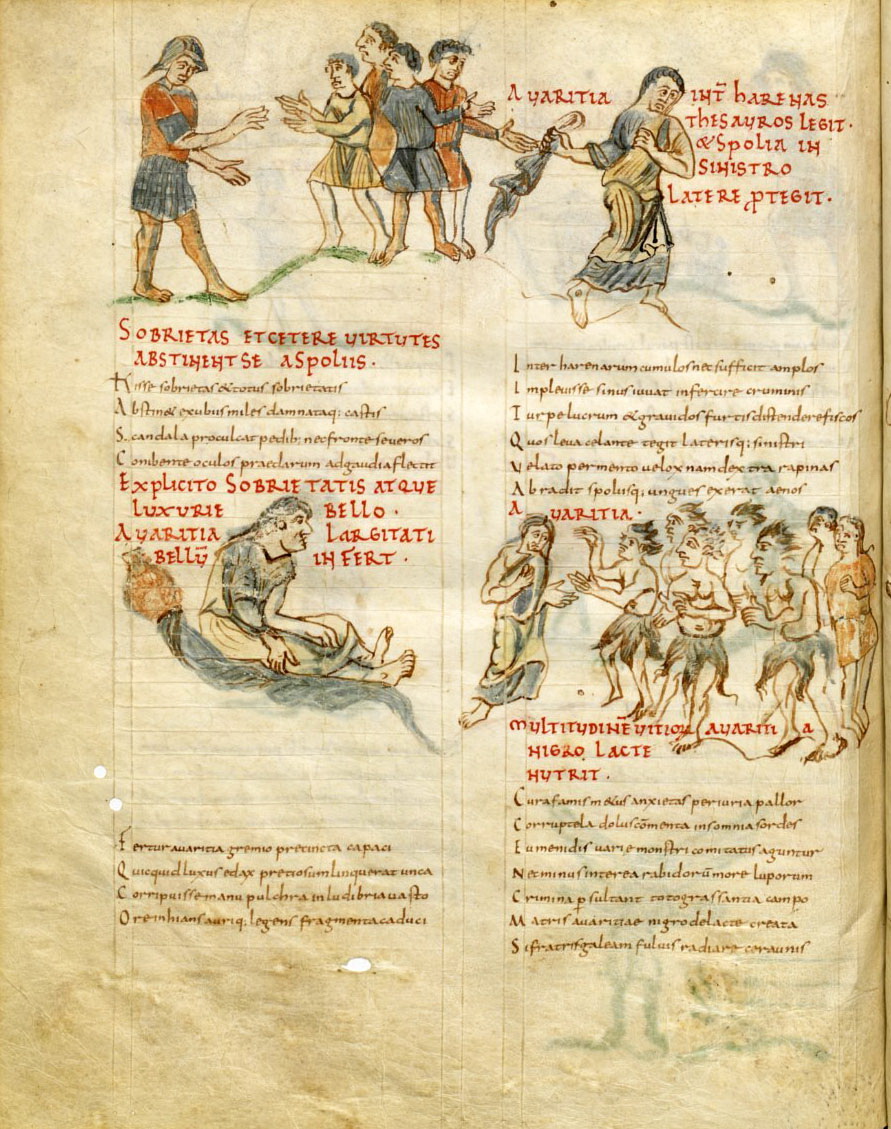 SOBRIETAS ET CETERE VIRTUTES
ABSTINENT SE A SPOLIIS ·
isse sobrietas & totus sobrietatis
Abstin& exubiis miles damnataq; castis
Scandala proculcat pedib; nec fronte severos
Conibente oculos praedarum ad gaudia flectit
EXPLICITO SOBRIETATIS ATQUE
LUXURIE BELLO ·
AVARITIA LARGITATI
BELLU̅ INFERT ·
Fertur avaritia gremio precincta capaci
Quicquid luxus edax pretiosum linquerat unca
Corripuisse manu pulchra in ludibria vasto
Ore inhians auriq; legens fragmenta caduci
AVARITIA INT̅ HARENAS
THESAUROS LEGIT ·
& SPOLIA IN
SINISTRO
LATERE ꝓTEGIT ·
Inter harenarum cumulos nec sufficit amplos
Implevisse sinus iuvat infercire cruminis
Turpe lucrum & gravidos furtis distendere fiscos
Quos leva celante tegit laterisq; sinistri
Velat opermento velox nam dextra rapinas
Abradit spoliisq; ungues exerat aenos
AVARITIA ·
MULTITUDINE̅ VITIOR AVARITIA
NIGRO LACTE
NUTRIT ·
Cura famis m&us anxietas periuria pallor
Corruptela dolus co̅menta insomnia sordes
Eumenidis varie monstri comitatus aguntur
Nec minus interea rabidoru̅ more luporum
Crimina ꝑsultant toto grassantia campo
Matris avaritiae nigro de lacte creata
Si fratris galeam fulvis radiare ceraunis